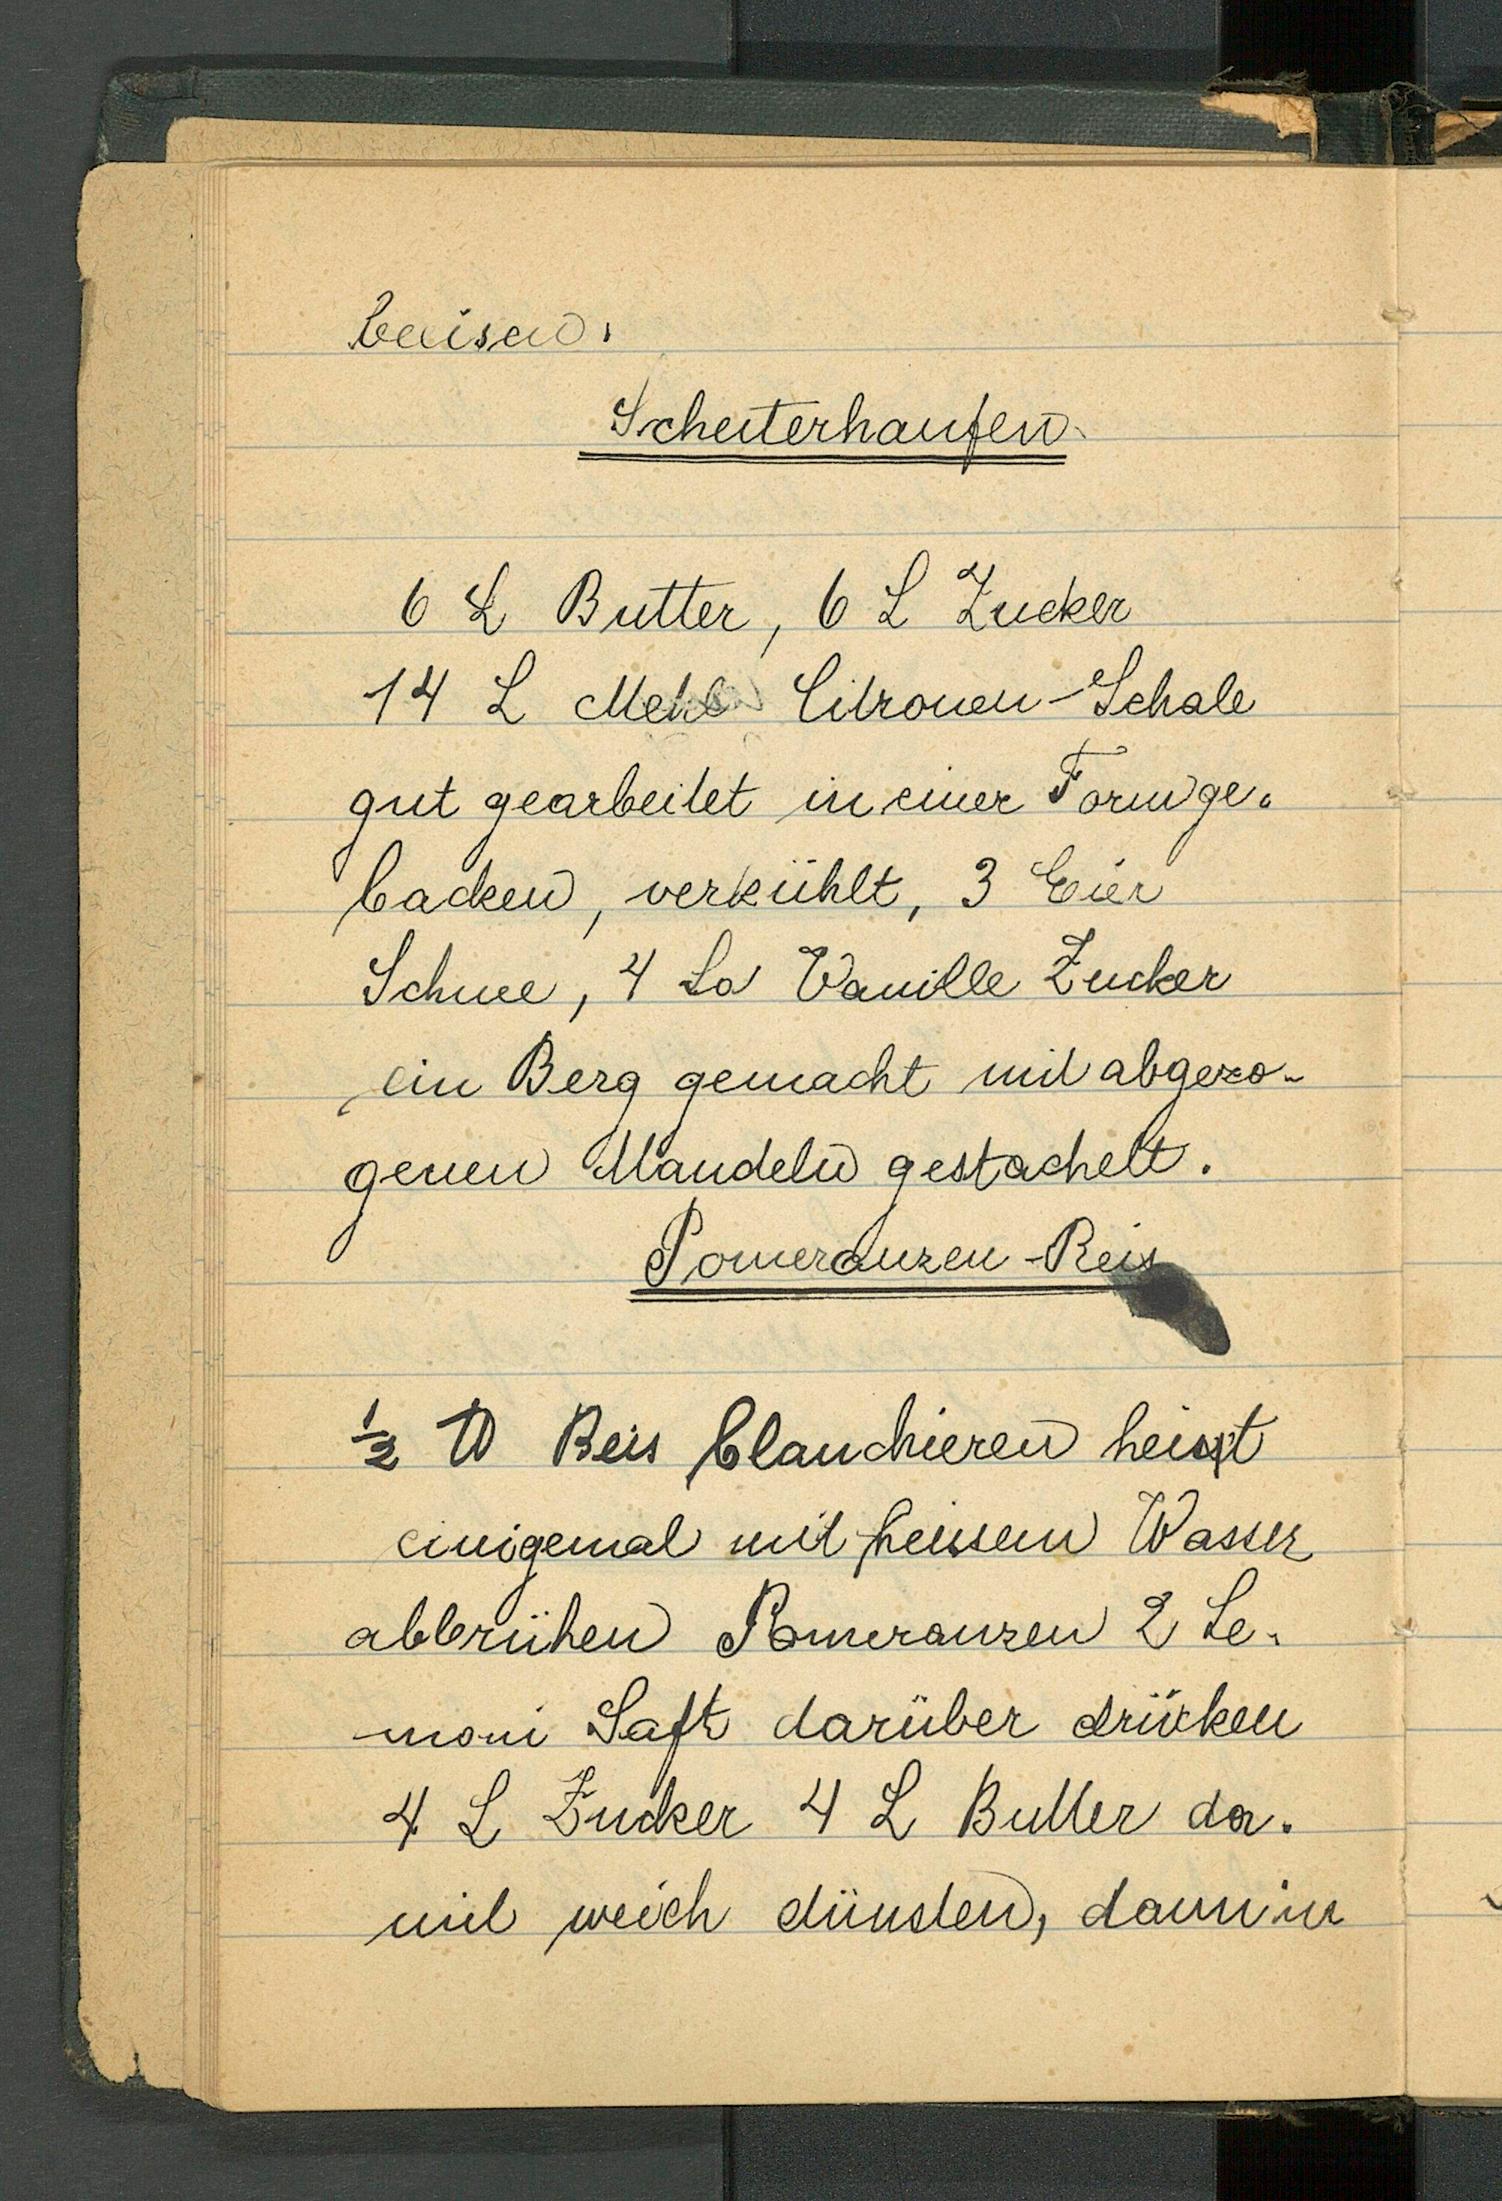 baisen.
Scheiterhaufen.
6 L Butter, 6 L Zucker
14 L Mehl Citronen-Schale
gut gearbeitet in einer Form ge.
backen, verkühlt, 3 Eier
Schnee, 4 Lo Vanille Zucker
ein Berg gemacht mit abgezo-
genen Mandeln gestachelt.
Pomeranzen-Reis
½ ℔ Reis blanchieren heisst
einigemal mit heissem Wasser
abbrühen Pomeranzen 2 Le.
moni Saft darüber drücken
4 L Zucker 4 L Butter da.
mit weich dünsten, dann in